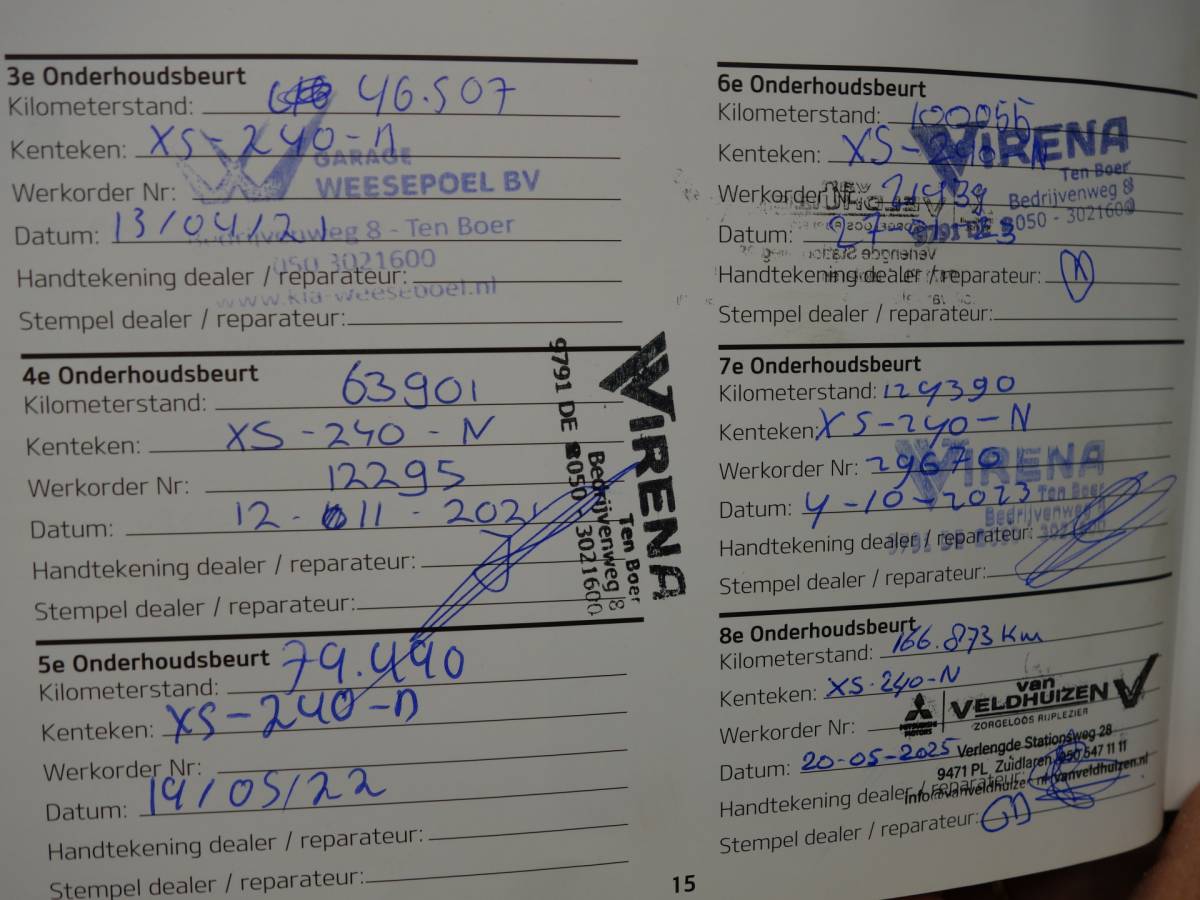 3e Onderhoudsbeurt
Kilometerstand: 46.507
Kenteken: XS-240-N
Werkorder Nr:
Datum: 13/04/21
Handtekening dealer / reparateur:
Stempel dealer / reparateur:
GARAGE
WEESEPOEL BV
Bedrijvenweg 8 - Ten Boer
050 3021600
www.kia-weesepoel.nl
4e Onderhoudsbeurt
Kilometerstand: 63901
Kenteken: XS-240-N
Werkorder Nr: 12295
Datum: 12-11-2021
Handtekening dealer / reparateur:
Stempel dealer / reparateur:
VIRENA
Ten Boer
Bedrijvenweg 8
9791 DE 050 - 3021600
5e Onderhoudsbeurt
Kilometerstand: 79.490
Kenteken: XS-240-N
Werkorder Nr:
Datum: 19/05/22
Handtekening dealer / reparateur:
Stempel dealer / reparateur:
6e Onderhoudsbeurt
Kilometerstand: 100055
Kenteken: XS-240-N
Werkorder Nr:
Datum: 27
Handtekening dealer / reparateur:
Stempel dealer / reparateur:
VIRENA
Ten Boer
Bedrijvenweg 8
9791 DE 050 - 3021600
7e Onderhoudsbeurt
Kilometerstand: 124390
Kenteken: XS-240-N
Werkorder Nr: 29670
Datum: 4-10-2023
Handtekening dealer / reparateur:
Stempel dealer / reparateur:
VIRENA
Ten Boer
Bedrijvenweg 8
8e Onderhoudsbeurt
Kilometerstand: 166.873 Km
Kenteken: XS-240-N
Werkorder Nr:
Datum: 20-05-2025
Handtekening dealer / reparateur:
Stempel dealer / reparateur:
MITSUBISHI
MOTORS
van
VELDHUIZEN
ZORGELOOS RIJPLEZIER
Verlengde Stationsweg 28
9471 PL Zuidlaren 050 547 11 11
15